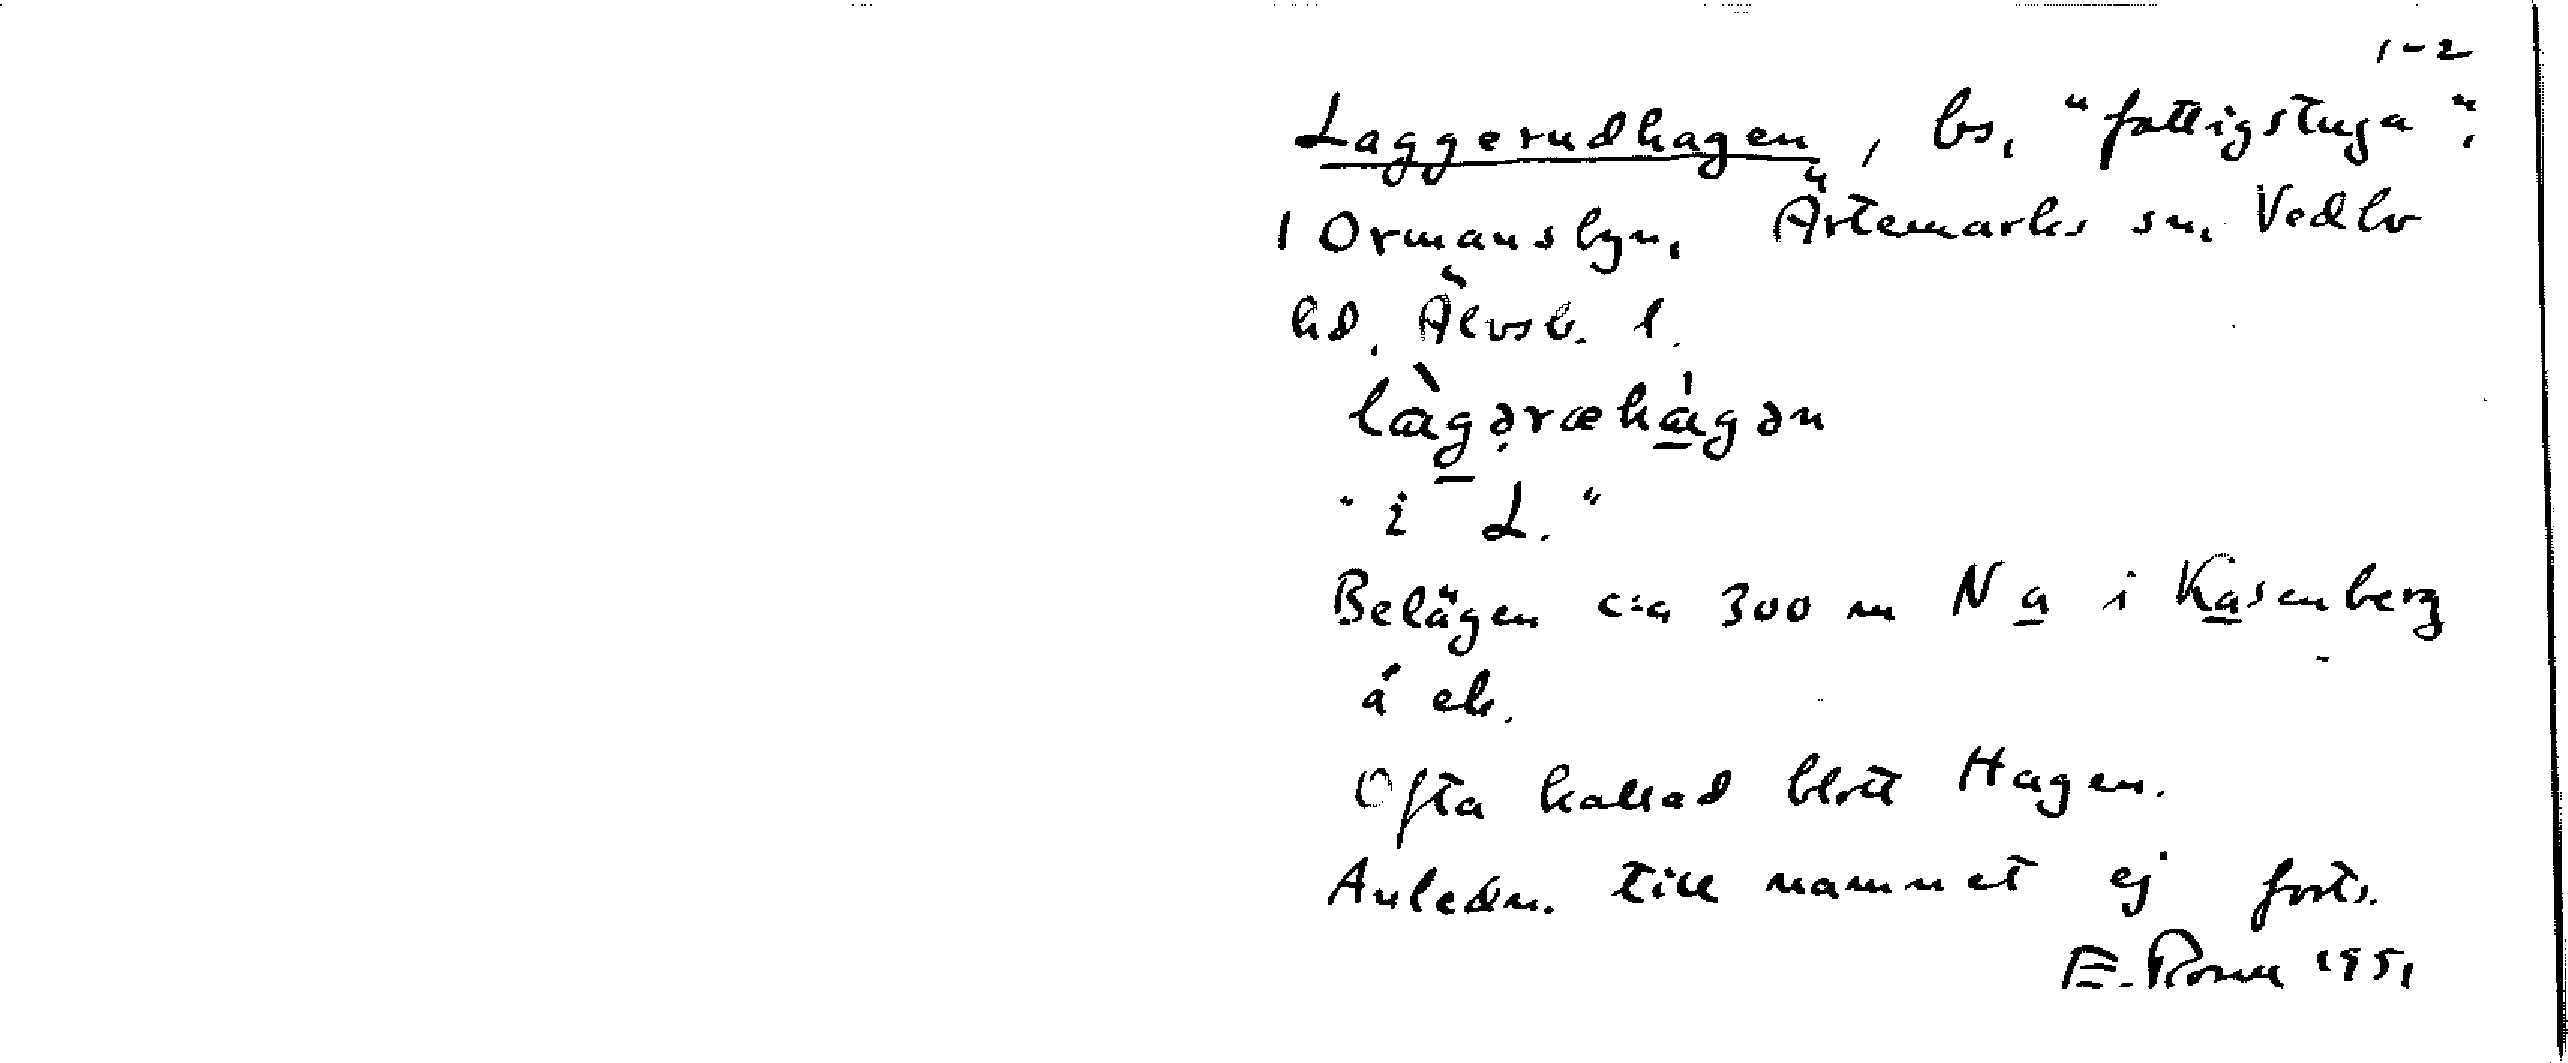 1-2
Laggerudhagen, bs, "fattigstuga",
1 Ormansbyn, Ärtemarks sn, Vedbo
hd. Älvsb. l.
làgəræhágən
"i L."
Belägen c:a 300 m N a i Kasenberg
å ek.
Ofta kallad blott Hagen.
Anledn. till namnet ej
E. 1951